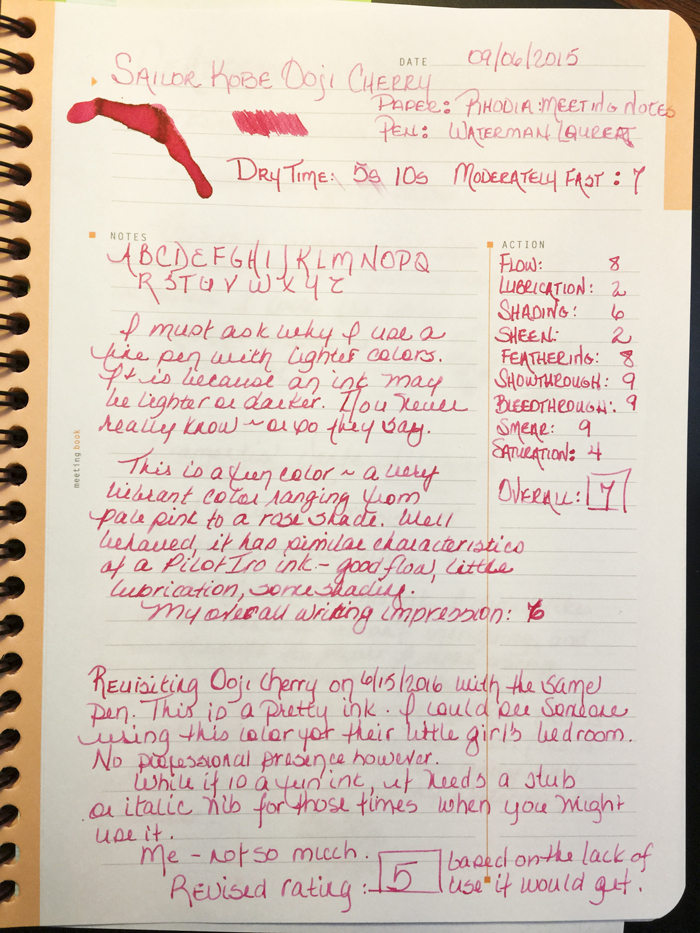 DATE 09/06/2015
SAILOR KOBE OJI CHERRY
PAPER: RHODIA MEETING NOTES
PEN: WATERMAN LAUREAT
DRY TIME: 5s 10s MODERATELY FAST: 7
NOTES
ABCDEFGHIJKLMNOPQ
RSTUVWXYZ
I must ask why I use a
fine pen with lighter colors.
It is because an ink may
be lighter or darker. You never
really know ~ or so they say.
This is a fun color ~ a very
vibrant color ranging from
pale pink to a rose shade. Well
behaved, it has similar characteristics
of a Pilot Iro ink - good flow, little
lubrication, some shading.
My overall writing impression: 6
ACTION
FLOW: 8
LUBRICATION: 2
SHADING: 6
SHEEN: 2
FEATHERING: 8
SHOWTHROUGH: 9
BLEEDTHROUGH: 9
SMEAR: 9
SATURATION: 4
OVERALL: 7
meeting book
Revisiting Ooji Cherry on 6/15/2016 with the same
pen. This is a pretty ink. I could see someone
using this color for their little girl's bedroom.
No professional presence however.
While it is a fun ink, it needs a stub
or italic nib for those times when you might
use it.
Me - not so much.
Revised rating: 5
based on the lack of
use it would get.